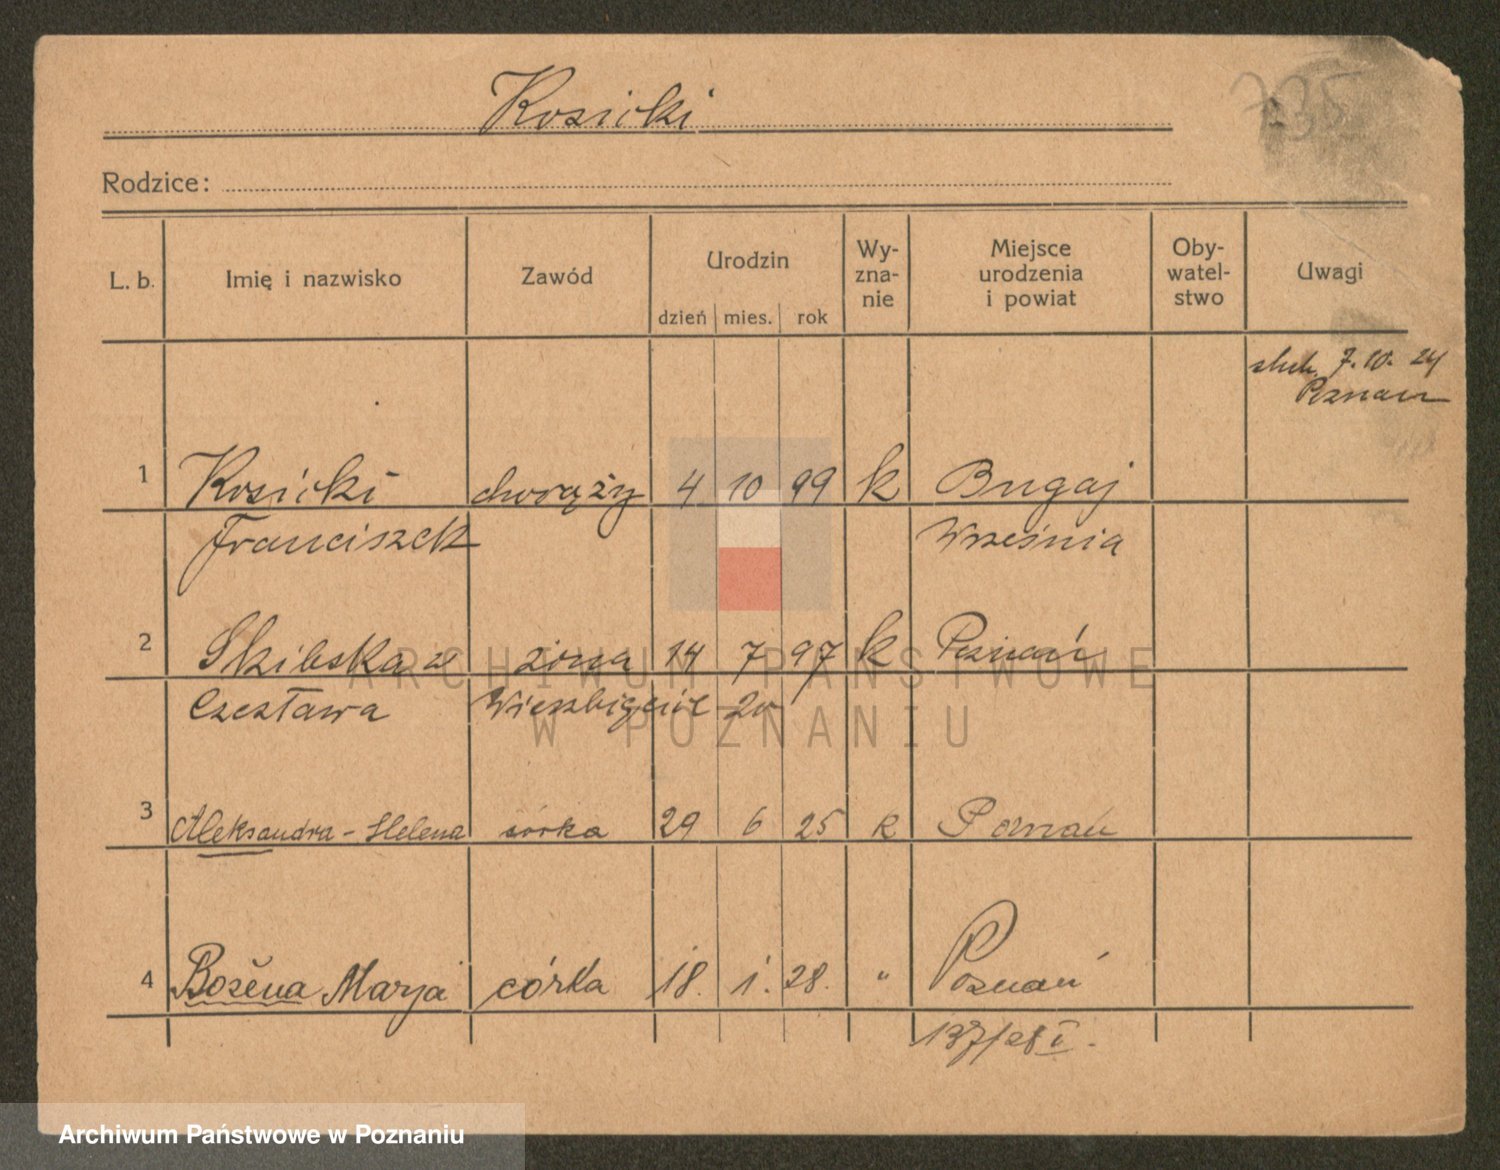 Kosicki
735
Rodzice:
L. b. Imię i nazwisko Zawód Urodzin Wy-zna-nie Miejsce urodzenia i powiat Oby-watel-stwo Uwagi
dzień mies. rok
ślub. 7.10. 24
Poznań
1 Kosicki chorąży 4 10 99 k Bugaj
Franciszek Września
2 Skibska z żona 14 7 97 k Poznań
Czesława Wierzbięcie 20
3 Aleksandra-Helena córka 29 6 25 k Poznań
4 Bożena Marja córka 18. 1. 28. " Poznań
137/28 I.
ARCHIWUM PAŃSTWOWE
W POZNANIU
Archiwum Państwowe w Poznaniu